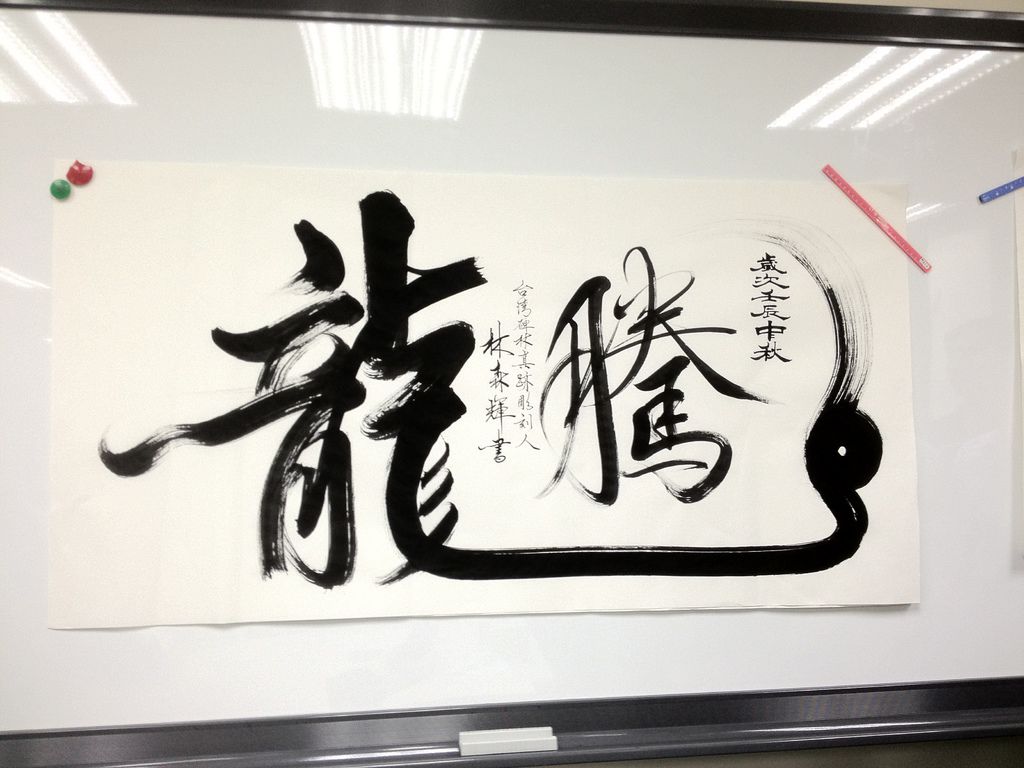 歲次壬辰中秋
騰
台灣碑林真跡彫刻人
林森輝書
龍